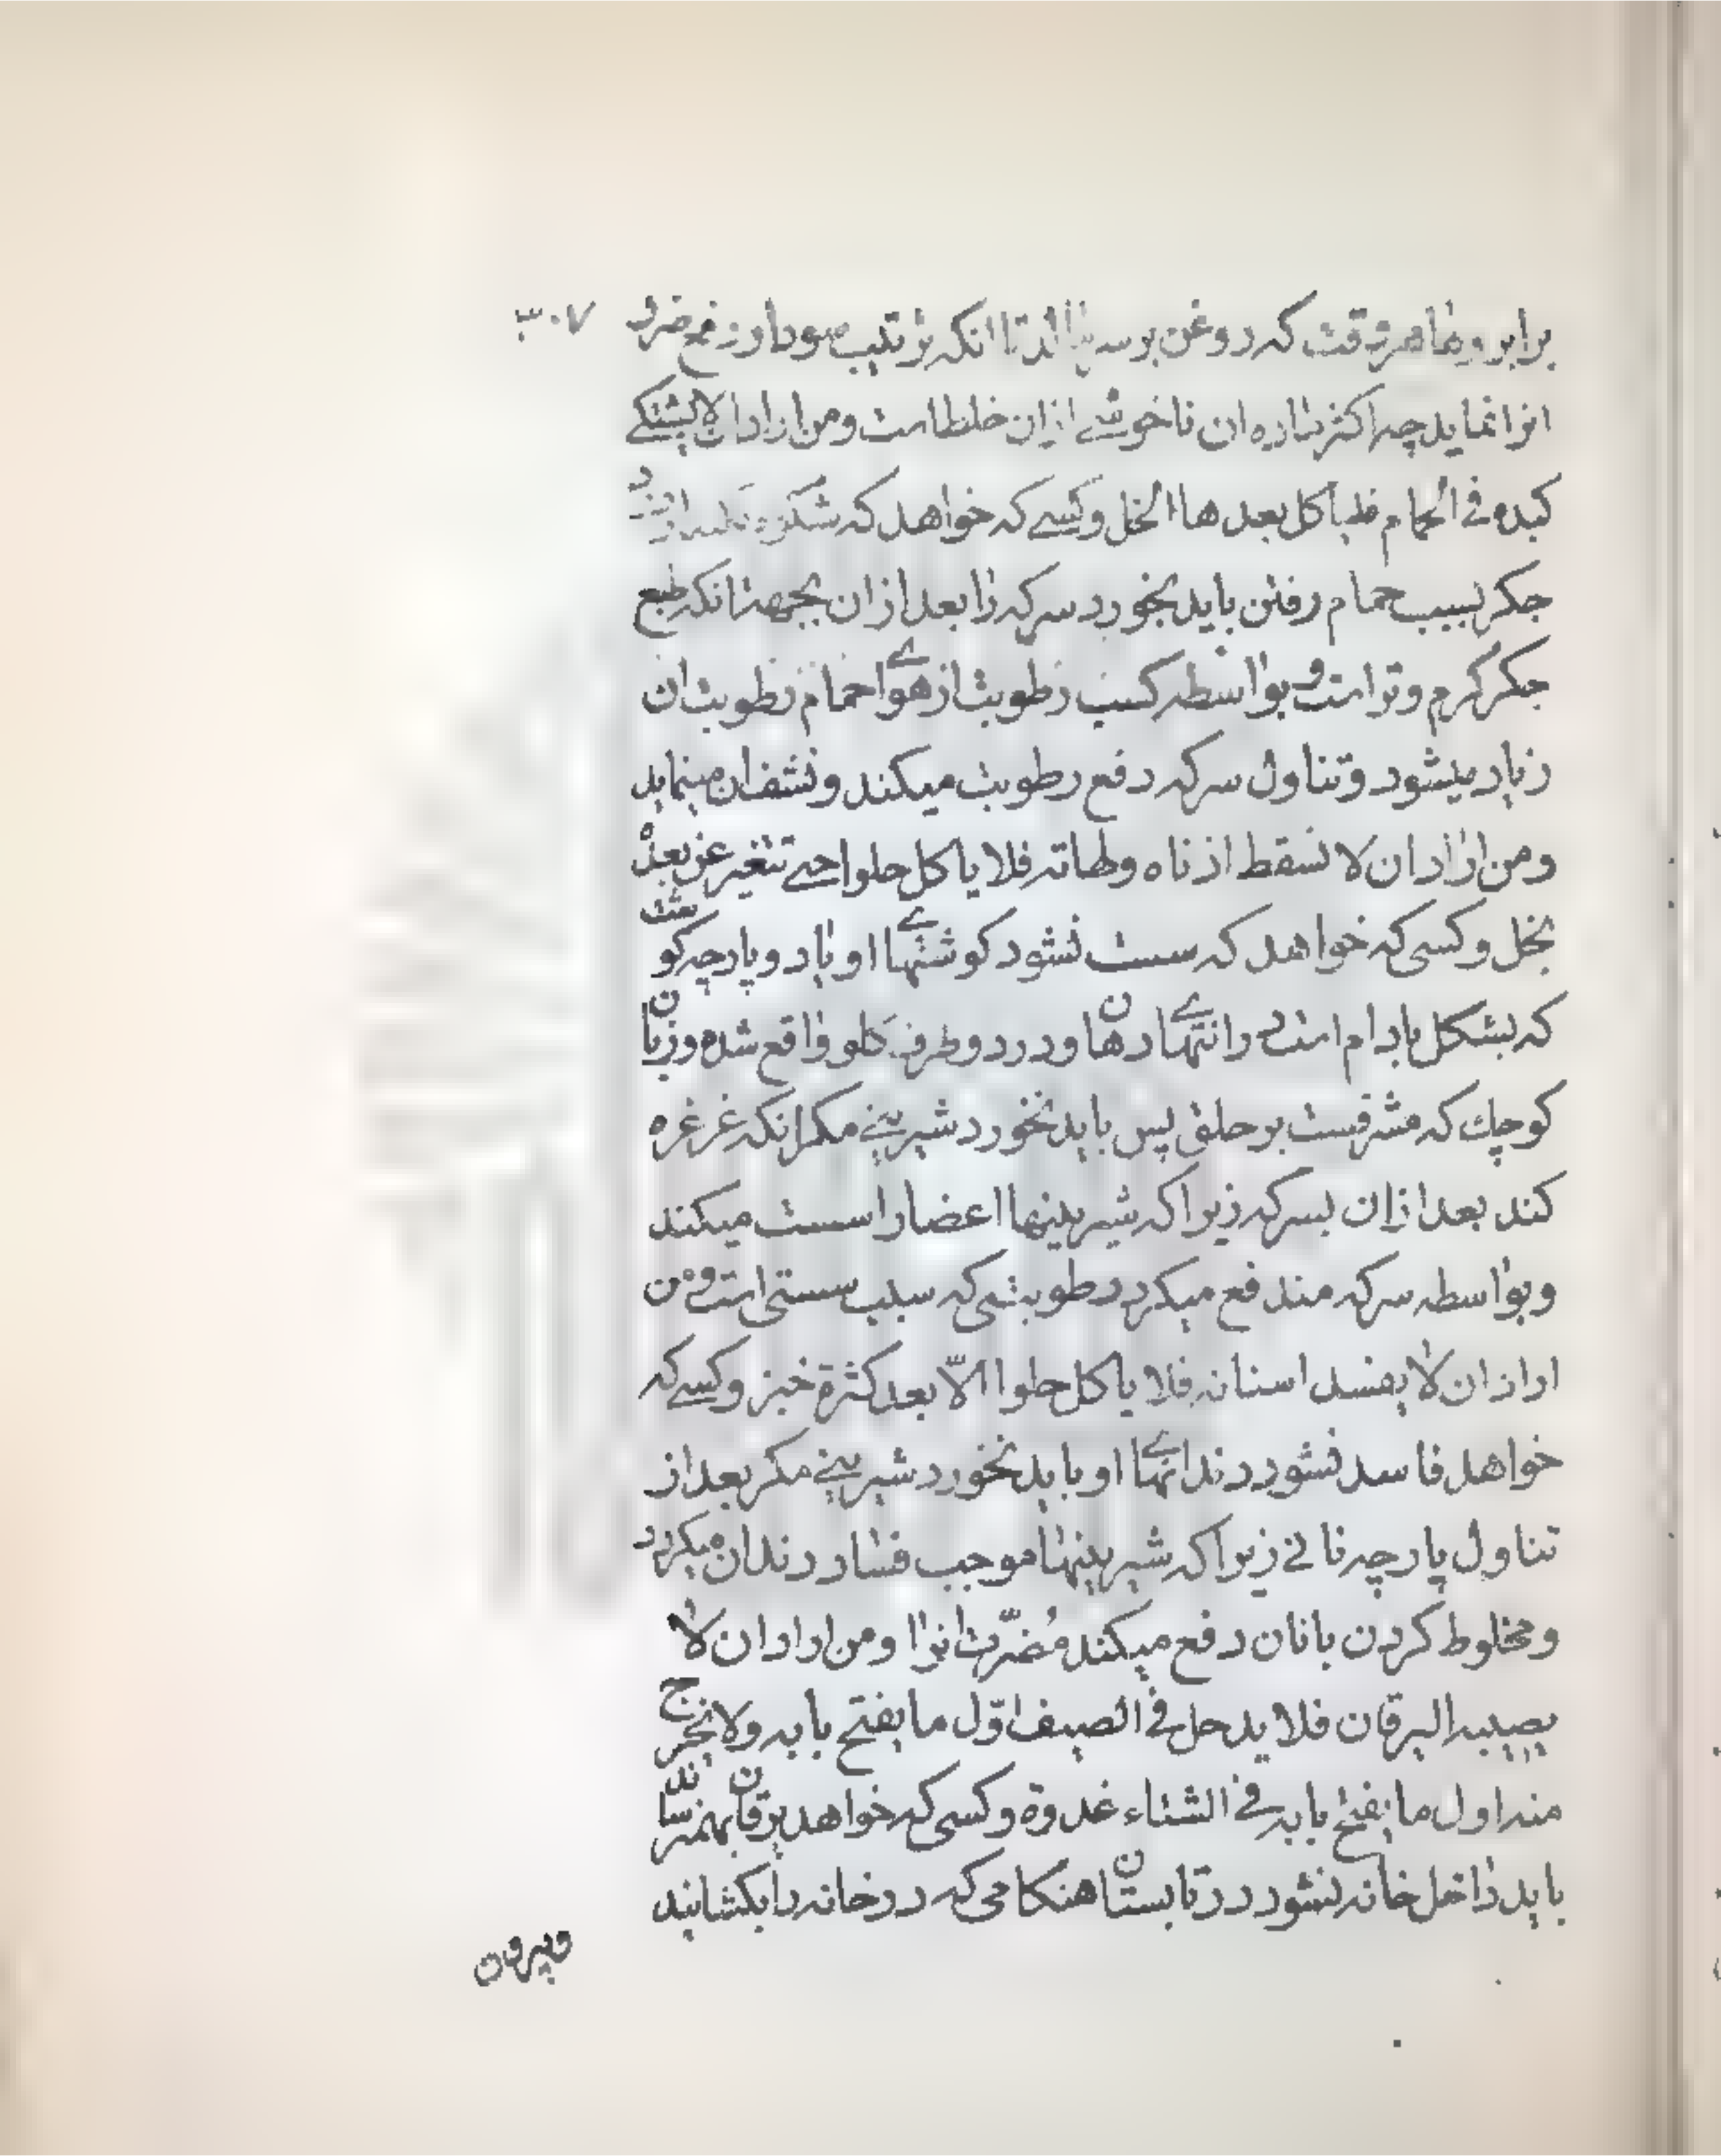 برابروها هر وقت که روغن بر سر تا انکه ترتیب سودا و رفع ضرر ۳۰۷
انرا نماید چه اکثر ان ناخوشی ازان خلط است ومن اراد ان لا یشتکی
کبده فی الحمام فلیاکل بعدها الخل وکسی که خواهد که شکوه
جکر بسبب حمام رفتن باید بخورد سرکه را بعد ازان بجهت انکه طبع
جکر کرم وتر است و بواسطه کسب رطوبت از هوای حمام رطوبت ان
زیاد میشود و تناول سرکه دفع رطوبت میکند ونشف ان مینماید
ومن اراد ان لا تسقط اذناه ولهاته فلا یاکل حلوا حتی تتغیر غر بعده
بخل وکسی که خواهد که سست نشود کوشهای او باد و پارچه کوشت
که بشکل بادام است در انتهای دهان و در دو طرف کلو واقع شده و زبان
کوچك که مشرفست بر حلق پس باید نخورد شیرینی مکر انکه غرغره
کند بعد ازان بسرکه زیرا که شیرینیها اعضا را سست میکند
وبواسطه سرکه مندفع میکردد رطوبتی که سبب سستی است ومن
اراد ان لا یفسد اسنانه فلا یاکل حلوا الّا بعد کثرة خبز وکسی که
خواهد فاسد نشود دندانهای او باید نخورد شیرینی مکر بعد از
تناول پارچه نانی زیرا که شیرینیها موجب فساد دندان میکردد
ومخلوط کردن با نان دفع میکند مُضرّت انرا ومن اراد ان لا
یصیبه الیرقان فلا یدخل فی الصیف اوّل ما یفتح بابه ولا یخرج
منه اول ما یفتح بابه فی الشتاء غدوة وکسی که خواهد یرقان بهم نرساند
باید داخل خانه نشود در تابستان هنکامی که در خانه را بکشانید
وبیرون